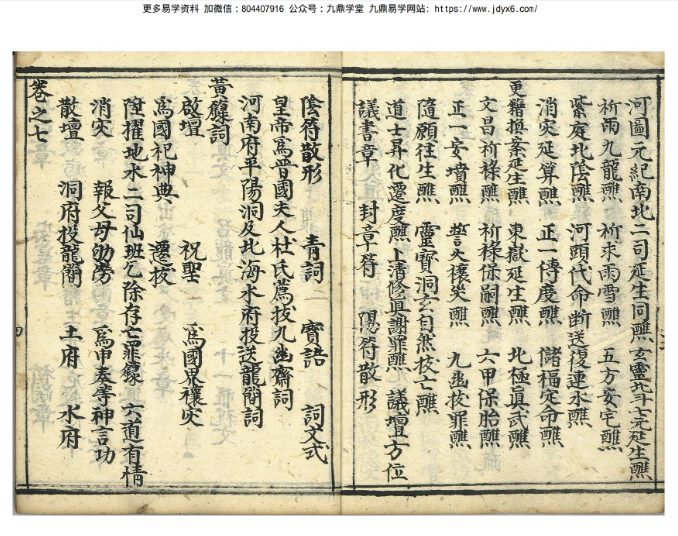 更多易学资料 加微信：804407916 公众号：九鼎学堂 九鼎易学网站：https://www.jdyx6.com/
河圖元紀南北二司延生同醮 玄靈北斗七元延生醮
祈雨九龍醮 祈求雨雪醮 五方安宅醮
紫庭北陰醮 河頭代命断送復連水醮
消灾延算醮 正一傳度醮 儲福定命醮
更籍換案延生醮 東嶽延生醮 北極真武醮
文昌祈祿醮 祈祿保嗣醮 六甲保胎醮
正一安墳醮 誓火禳灾醮 九幽拔罪醮
隨願往生醮 靈寶洞玄自然拔亡醮
道士昇化遷度醮 上清修真謝罪醮 議壇方位
議書章 封章符 陽符散形
陰符散形 青詞 寳誥 詞文式
皇帝為晉國夫人杜氏薦拔九幽齋詞
河南府平陽洞及北海水府投送龍簡詞
黃籙詞
啟壇 祝聖 為國界禳灾
為國祀神典 遷拔
陞擢地水二司仙班乞除存亡罪緣 六道有情
消灾 報父母劬勞 為申奏等神言功
散壇 洞府投龍簡 土府 水府
卷之七